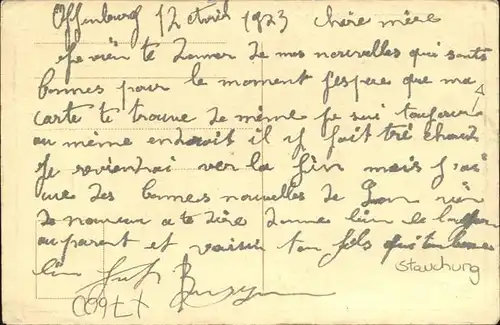 Offenbourg 12 Avril 1923 chère mère
Je vien te donner de mes nouvelles qui sont
bonnes pour le moment J'espère que ma
carte te trouve de même Je sui toujour
au même endroit il y fait trè chaud
Je reviendrai ver la fin mais J'ai
ue des bonnes nouvelles de rien
de nouveau a te dire donne bien le
au parent et voisin ton fils qui
bien
Stauchung